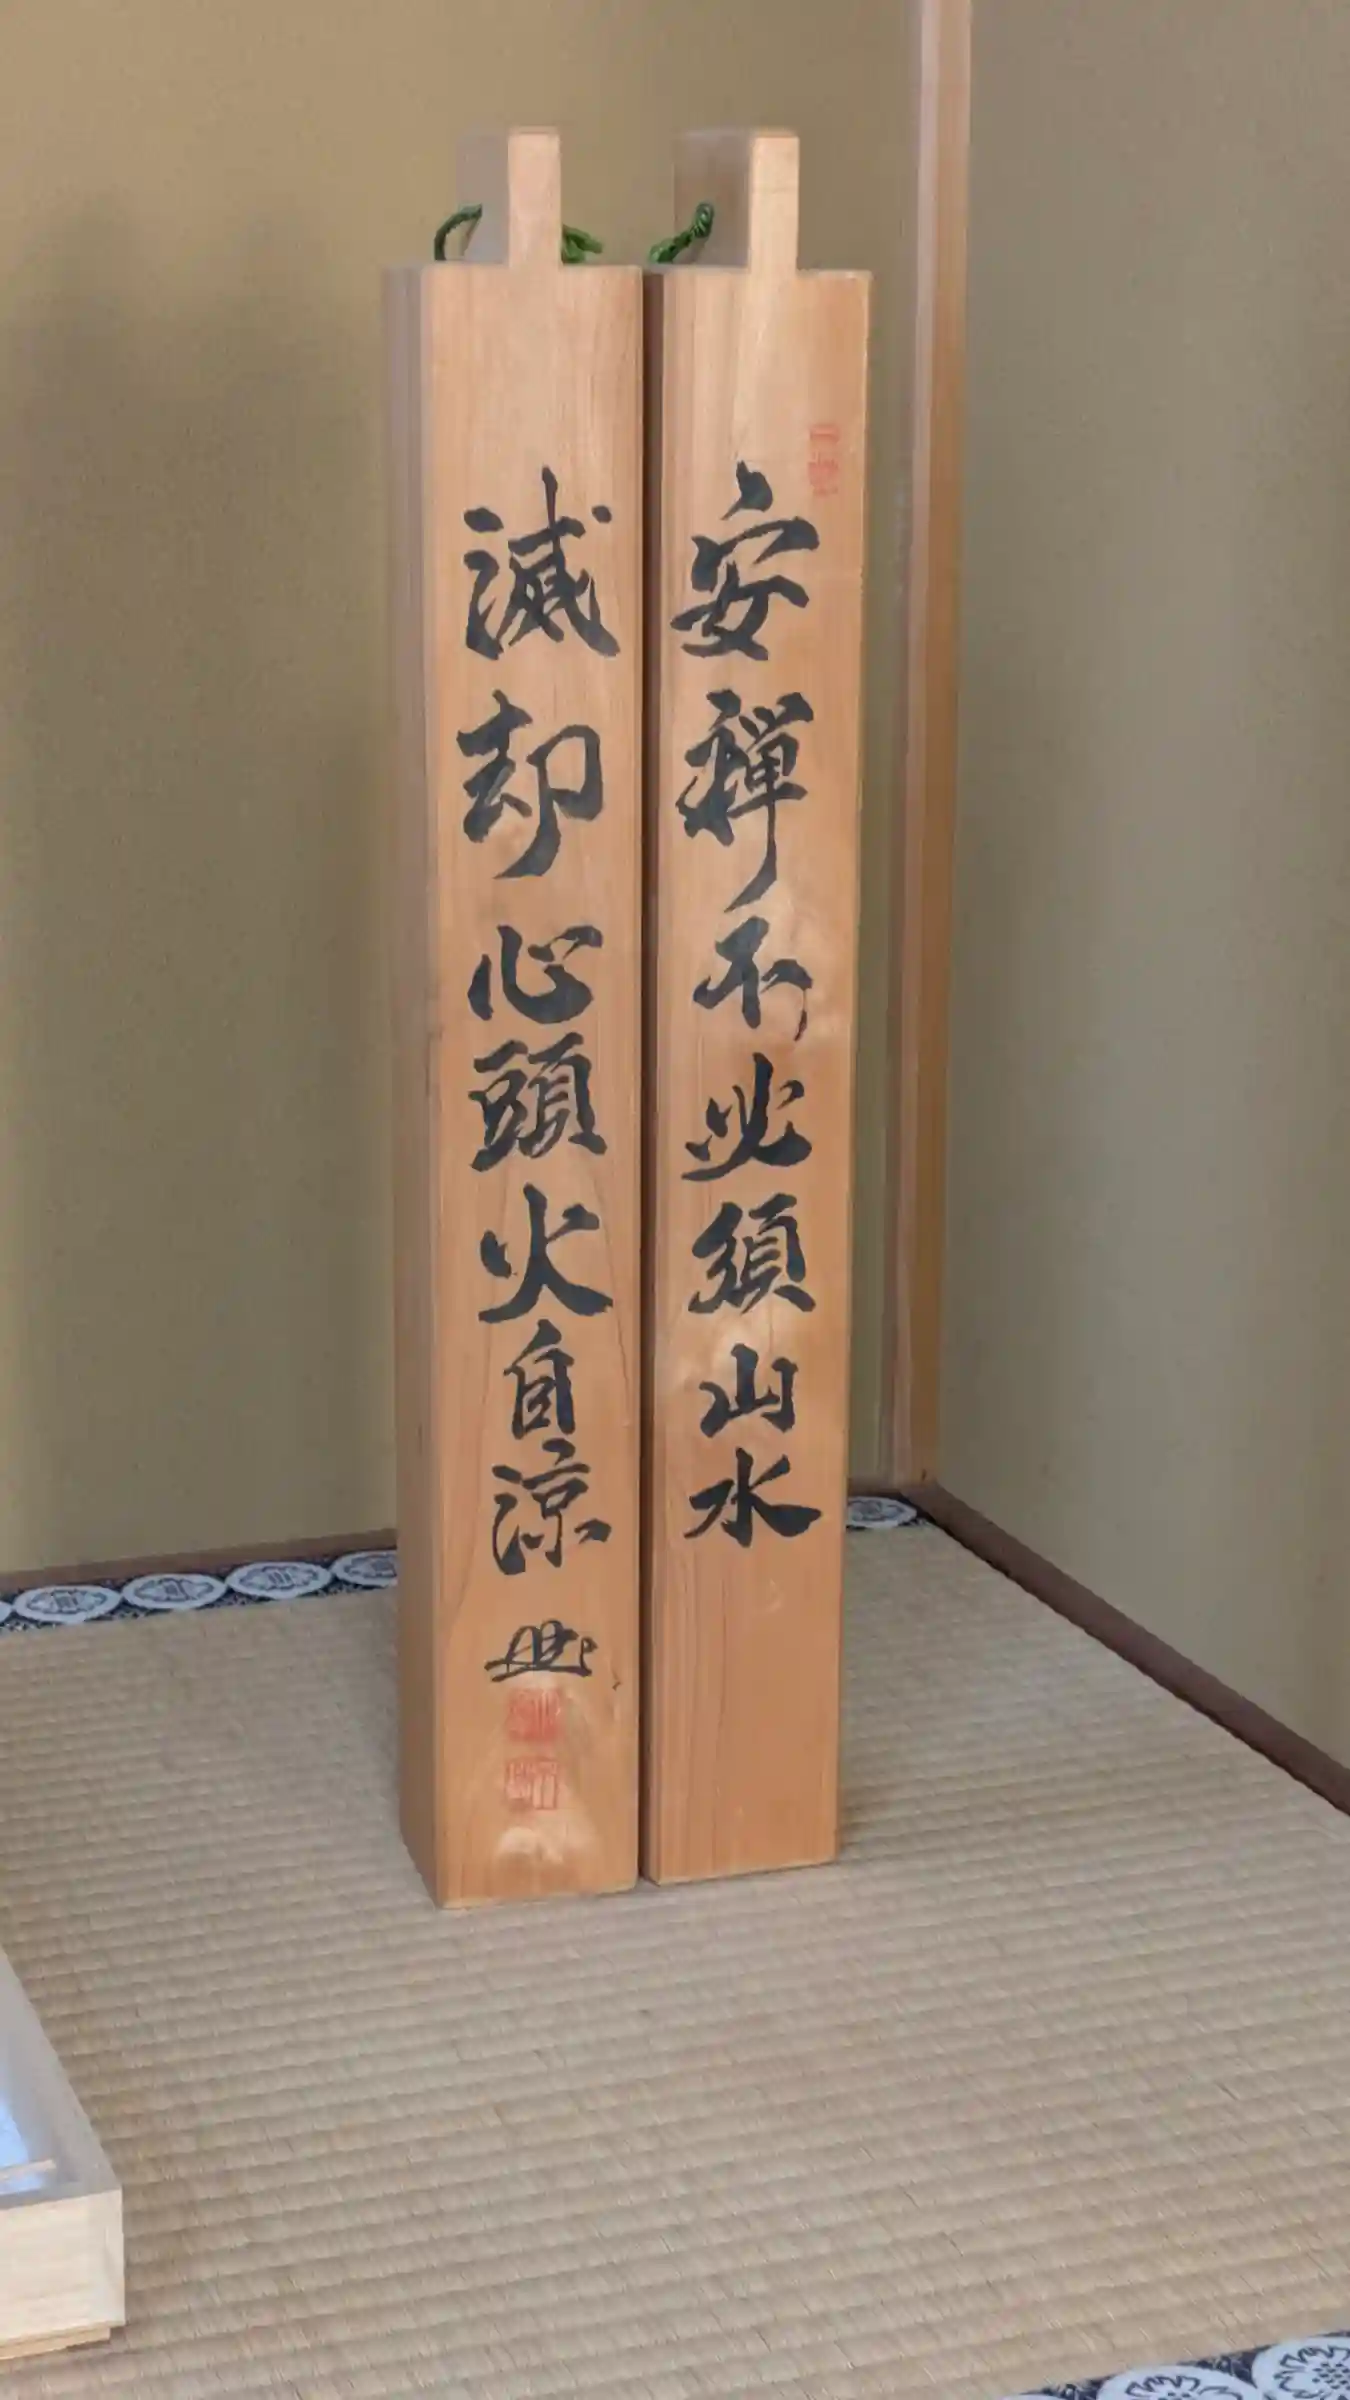 安禅不必須山水
滅却心頭火自涼